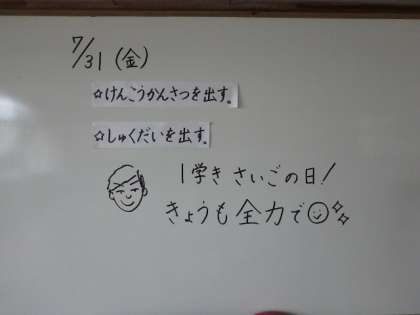 7/31(金)
☆けんこうかんさつを出す。
☆しゅくだいを出す。
1学き さいごの日!
きょうも全力で